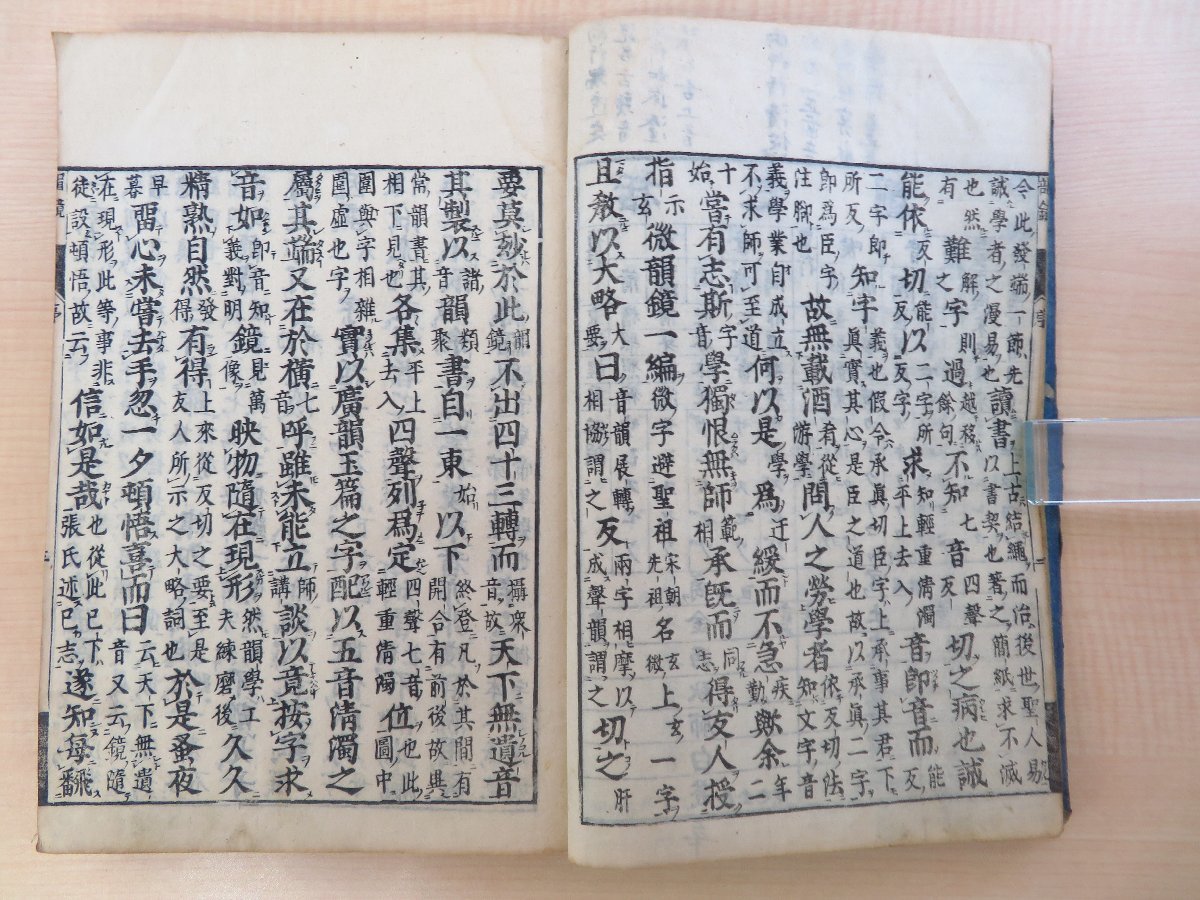 今此發端一師先誡學者之慢易也讀書上古結繩而治後世聖人易以書契也著之簡紙求不滅
也然有難解則之字過越移餘句不知七音四聲反切之病也誠
能依反切能反以二字反字求所知輕重清濁平上去入音即音而能反
二字即所反知字義也假令承真切臣字上承事其君下真實其心是臣之道也故以承真二字
即為臣字注脚也故無載酒肴從游學問人之勞學者依反切法知文字音
義學業自成立不求師可至道何以是為學迂緩而不急疾勤歟余年二
十始嘗有志斯字音學獨恨無師範相承既而同志得友人授
指示玄微韻鏡一編微字避聖祖宋朝先祖名玄微上玄一字
且教以大略大要曰音韻展轉相協謂之反兩字相摩以成聲韻謂之切之肝
要莫妙於此韻鏡不出四十三轉而攝衆音故天下無遺音
其製以諸音韻類聚書自一東始以下終登凡於其間有開合有前後故異
常韻書其相下見也各集平上去入四聲列為定四聲七音也此輕重清濁位圖中
圍與字相雜圖虛也字實以廣韻玉篇之字配以五音清濁之
屬其端又在於橫七音呼雖未能立師講談以竟按字求
音如即音知義對明鏡見萬像映物隨在現形然韻學工夫練磨後久久
精熟自然發得有得上來從反切之要至是友人所示之大略詞也於是蚤夜
早暮留心未嘗去手忽一夕頓悟喜而曰云天下無遺音又云鏡隨
在現形此等事非徒設頓悟故云信如是哉也從此已下張氏述已志遂知每翻飛